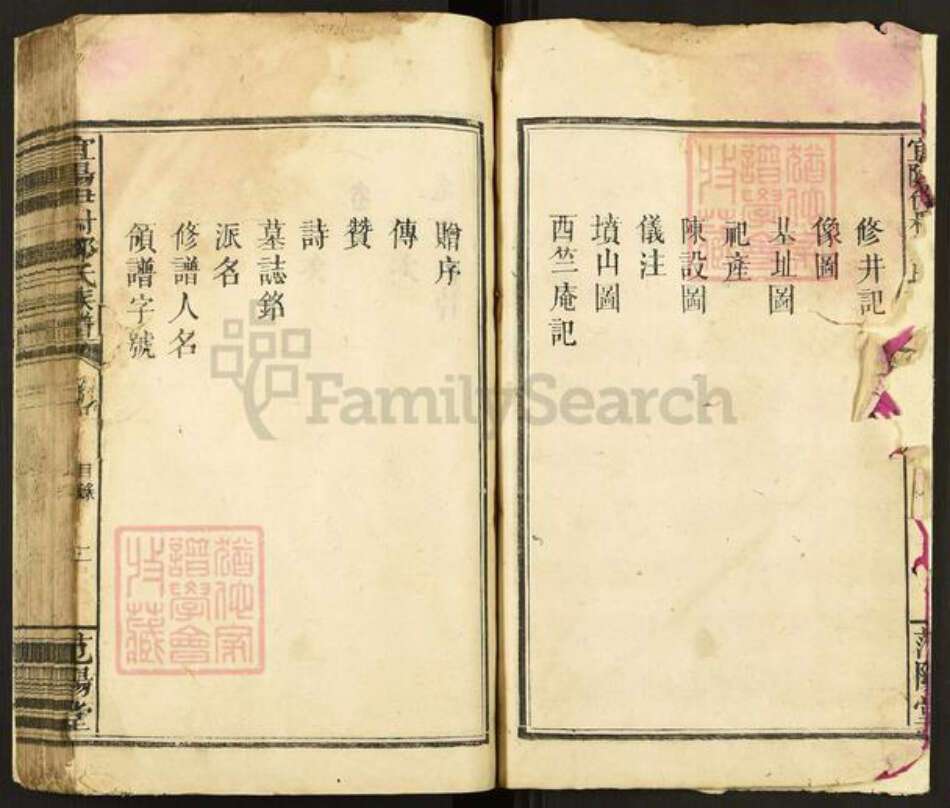 修井記
像圖
基址圖
祀産
陳設圖
儀注
墳山圖
西竺庵記
贈序
傳
贊
詩
墓誌銘
派名
修譜人名
領譜字號
目錄
二
范陽堂
范陽堂
猶他家
譜學會
收藏
猶他家
譜學會
收藏
FamilySearch